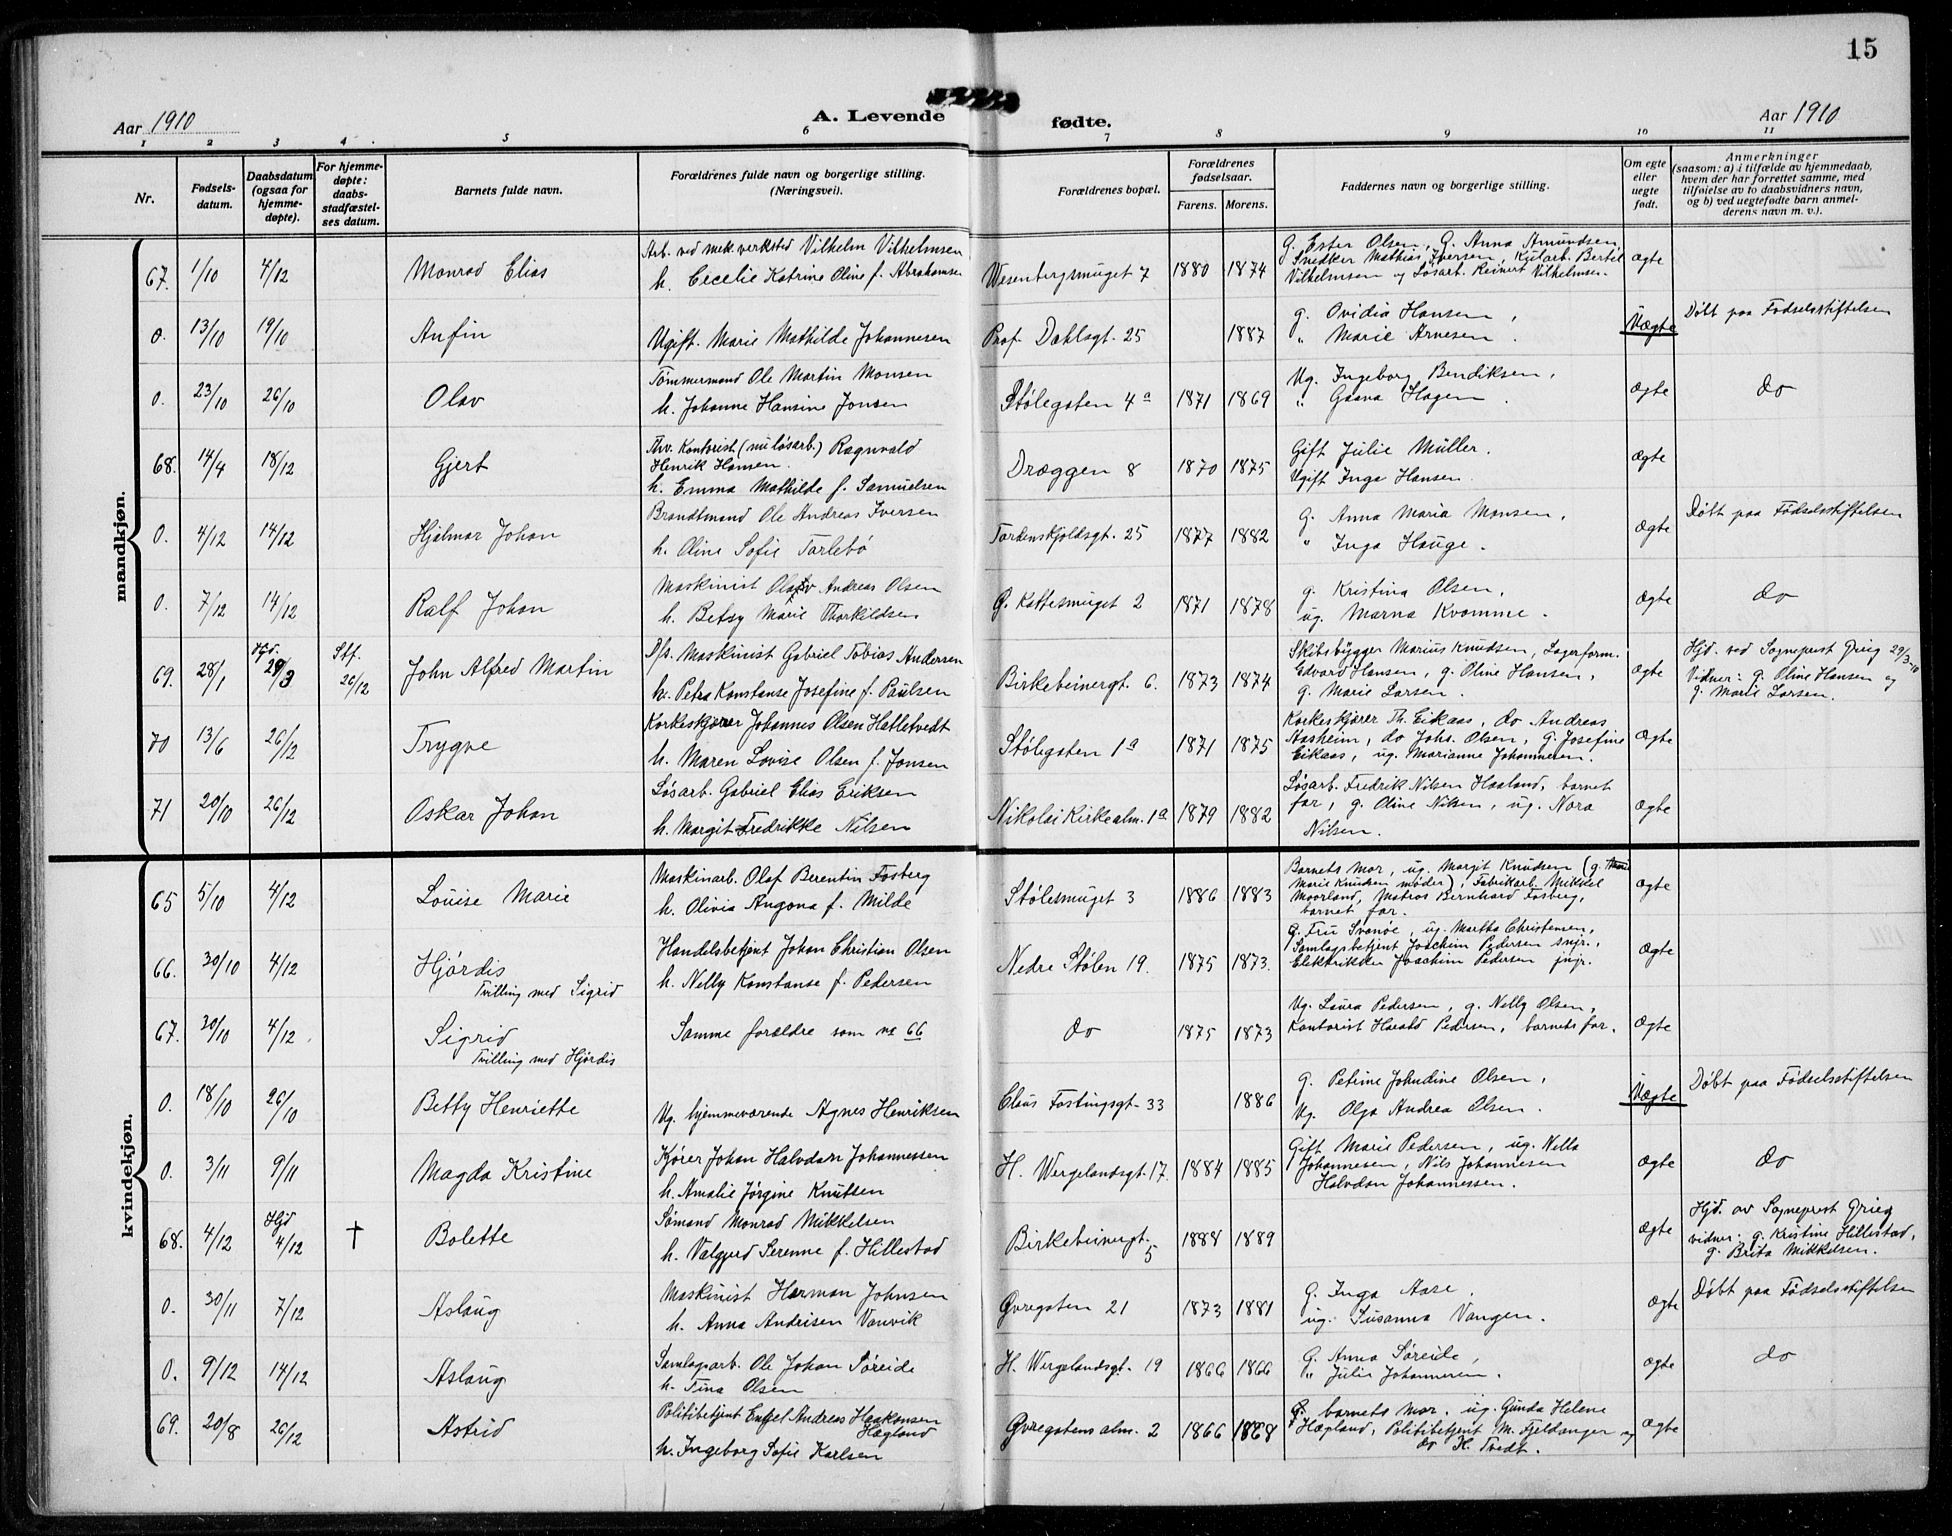 15
Aar 1910
A. Levende
fødte.
Aar 1910
1 2 3 4 5 6 7 8 9 10 11
Nr.
Fødsels-
datum.
Daabsdatum
(ogsaa for
hjemme-
døpte).
For hjemme-
døpte:
daabs-
stadfæstel-
ses datum.
Barnets fulde navn.
Forældrenes fulde navn og borgerlige stilling.
(Næringsvei).
Forældrenes bopæl.
Forældrenes
fødselsaar.
Farens. Morens.
Faddernes navn og borgerlige stilling.
Om egte
eller
uegte
født.
Anmerkninger
(saasom: a) i tilfælde av hjemmedaab,
hvem der har forrettet samme, med
tilføielse av to daabsvidners navn,
og b) ved uegtefødte barn anmel-
derens navn m. v.).
mandkjøn.
67. 1/10 4/12 Monrad Elias
Arb. ved mek. verksted Vilhelm Vilhelmsen
h. Cecelie Katrine Oline f. Abrahamsen
Wesenbergsmuget 7 1880 1874
G. Ester Olsen, G. Anna Amundsen,
Snedker Mathias Iversen, Kularb. Bertel
Vilhelmsen og Løsarb. Reinert Vilhelmsen.
Ægte
0. 13/10 19/10 Anfin
Ugift. Marie Mathilde Johannesen
Prof. Dahlsgt. 25 1887
g. Ovidia Hansen,
" Marie Arnesen.
Uægte
Døbt paa Fødselsstiftelsen
0. 23/10 26/10 Olav
Tømmermand Ole Martin Monsen
h. Johanne Hansine Jonsen
Stølegaten 4a 1871 1869
Ug. Ingeborg Bendiksen,
" Hagen.
Ægte
do
68. 14/4 18/12 Gjert
Fhv. Kontorist (nu løsarb.) Ragnvald
Henrik Hansen.
h. Emma Mathilde f. Samuelsen
Dræggen 8 1870 1875
Gift Julie Müller.
Ugift Inga Hansen.
Ægte
0. 4/12 14/12 Hjalmar Johan
Brandtmand Ole Andreas Iversen
h. Oline Sofie Tarlebø
Tordenskjoldsgt. 25 1877 1882
G. Anna Maria Monsen,
" Inga Hauge.
Ægte
Døbt paa Fødselsstiftelsen
0. 7/12 14/12 Ralf Johan
Maskinist Olav Andreas Olsen
h. Betsy Marie Thorkildsen
G. Kattesmuget 2 1871 1878
g. Kristina Olsen,
ug. Marna Kvamme.
Ægte
do
69. 28/1 Hjd. 29/3 Stf. 26/12 John Alfred Martin
D/s. Maskinist Gabriel Tobias Andersen
h. Petra Konstanse Josefine f. Paulsen
Birkebeinergt. 6. 1873 1874
Skibsbygger Marius Knudsen, Lagerform.
Edvard Hansen, g. Oline Hansen,
g. Marie Larsen.
Ægte
Hjd. ved Sogneprest Grieg 29/3-10
Vidner: g. Oline Hansen og
g. Marie Larsen.
70 13/6 26/12 Trygve
Korkeskjærer Johannes Olsen Hatletvedt
h. Maren Lovise Olsen f. Jonsen
Stølegaten 1a 1871 1875
Korkeskjærer Th. Eikaas, do Andreas
Aasheim, do Johs. Olsen, g. Josefine
Eikaas, ug. Marianne Johannesen.
Ægte
71 20/10 26/12 Oskar Johan
Løsarb. Gabriel Elias Eriksen
h. Margit Fredrikke Nilsen
Nikolai Kirkealm. 1a 1879 1882
Løsarb. Fredrik Nilsen Haaland, barnet
far, g. Oline Nilsen, ug. Nora
Nilsen.
Ægte
kvindekjøn.
65 5/10 4/12 Louise Marie
Maskinarb. Olaf Berentin Fosberg
h. Olivia Angona f. Milde
Stølesmuget 3 1886 1883
Barnets Mor, ug. Margit Knudsen (g.
Marie Knudsen møder), Fabrikarb. Mikkel
Moorland, Matros Bernhard Fosberg,
barnet far.
Ægte
66. 30/10 4/12 Hjørdis
Tvilling med Sigrid
Handelsbetjent Johan Christian Olsen
h. Nelly Konstanse f. Pedersen
Nedre Stølen 19. 1875 1873.
G. Fru Svanøe, ug. Martha Christensen,
Samlagsbetjent Joachim Pedersen snr.,
Elektrikker Joachim Pedersen jnr.
Ægte
67. 30/10 4/12 Sigrid
Tvilling med Hjørdis
Samme forældre som no 66
do 1875 1873
Ug. Laura Pedersen, g. Nelly Olsen,
Kontorist Harald Pedersen, barnets far.
Ægte
0. 18/10 26/10 Betty Henriette
Ug. hjemmeværende Agnes Henriksen
Claus Fastingsgt. 33 1886
g. Petrine Johndine Olsen,
Ug. Olga Andrea Olsen.
Uægte
Døbt paa Fødselsstiftelsen
0. 3/11 9/11 Magda Kristine
Kjører Johan Halvdan Johannessen
h. Amalie Jørgine Knutsen
H. Wergelandsgt. 17. 1884 1885
Gift Marie Pedersen, ug. Nella
Johannesen, Nils Johannesen
Halvdan Johannessen.
Ægte
do
68. 4/12 Hjd 4/12 † Bolette
Sømand Monrad Mikkelsen
h. Valgjerd Serenne f. Hillestad
Birkebeinergt.
5 1888 1889
Ægte
Hjd. av Sogneprest Grieg
vidner. g. Kristine Hillestad,
g. Brita Mikkelsen.
0. 30/11 7/12 Aslaug
Maskinist Herman Johnsen
h. Anna Andrisen Vanvik
Øvregaten 21 1873 1881
G. Inga Aase.
ug. Susanna Vangen.
Ægte
Døbt paa Fødselsstiftelsen
0. 9/12 14/12 Aslaug
Samlagsarb. Ole Johan Søreide
h. Tina Olsen
H. Wergelandsgt. 19 1866 1866
G. Anna Søreide,
" Julie Johannesen.
Ægte
do
69. 20/8 26/12 Astrid
Politibetjent Engel Andreas Haakonsen
Hægland
h. Ingeborg Sofie Karlsen
Øvregatens alm. 2 1866 1868
G. barnets mor. ug. Gunda Helene
Hægland, Politibetjent M. Fjeldanger og
do H. Tvedt.
Ægte